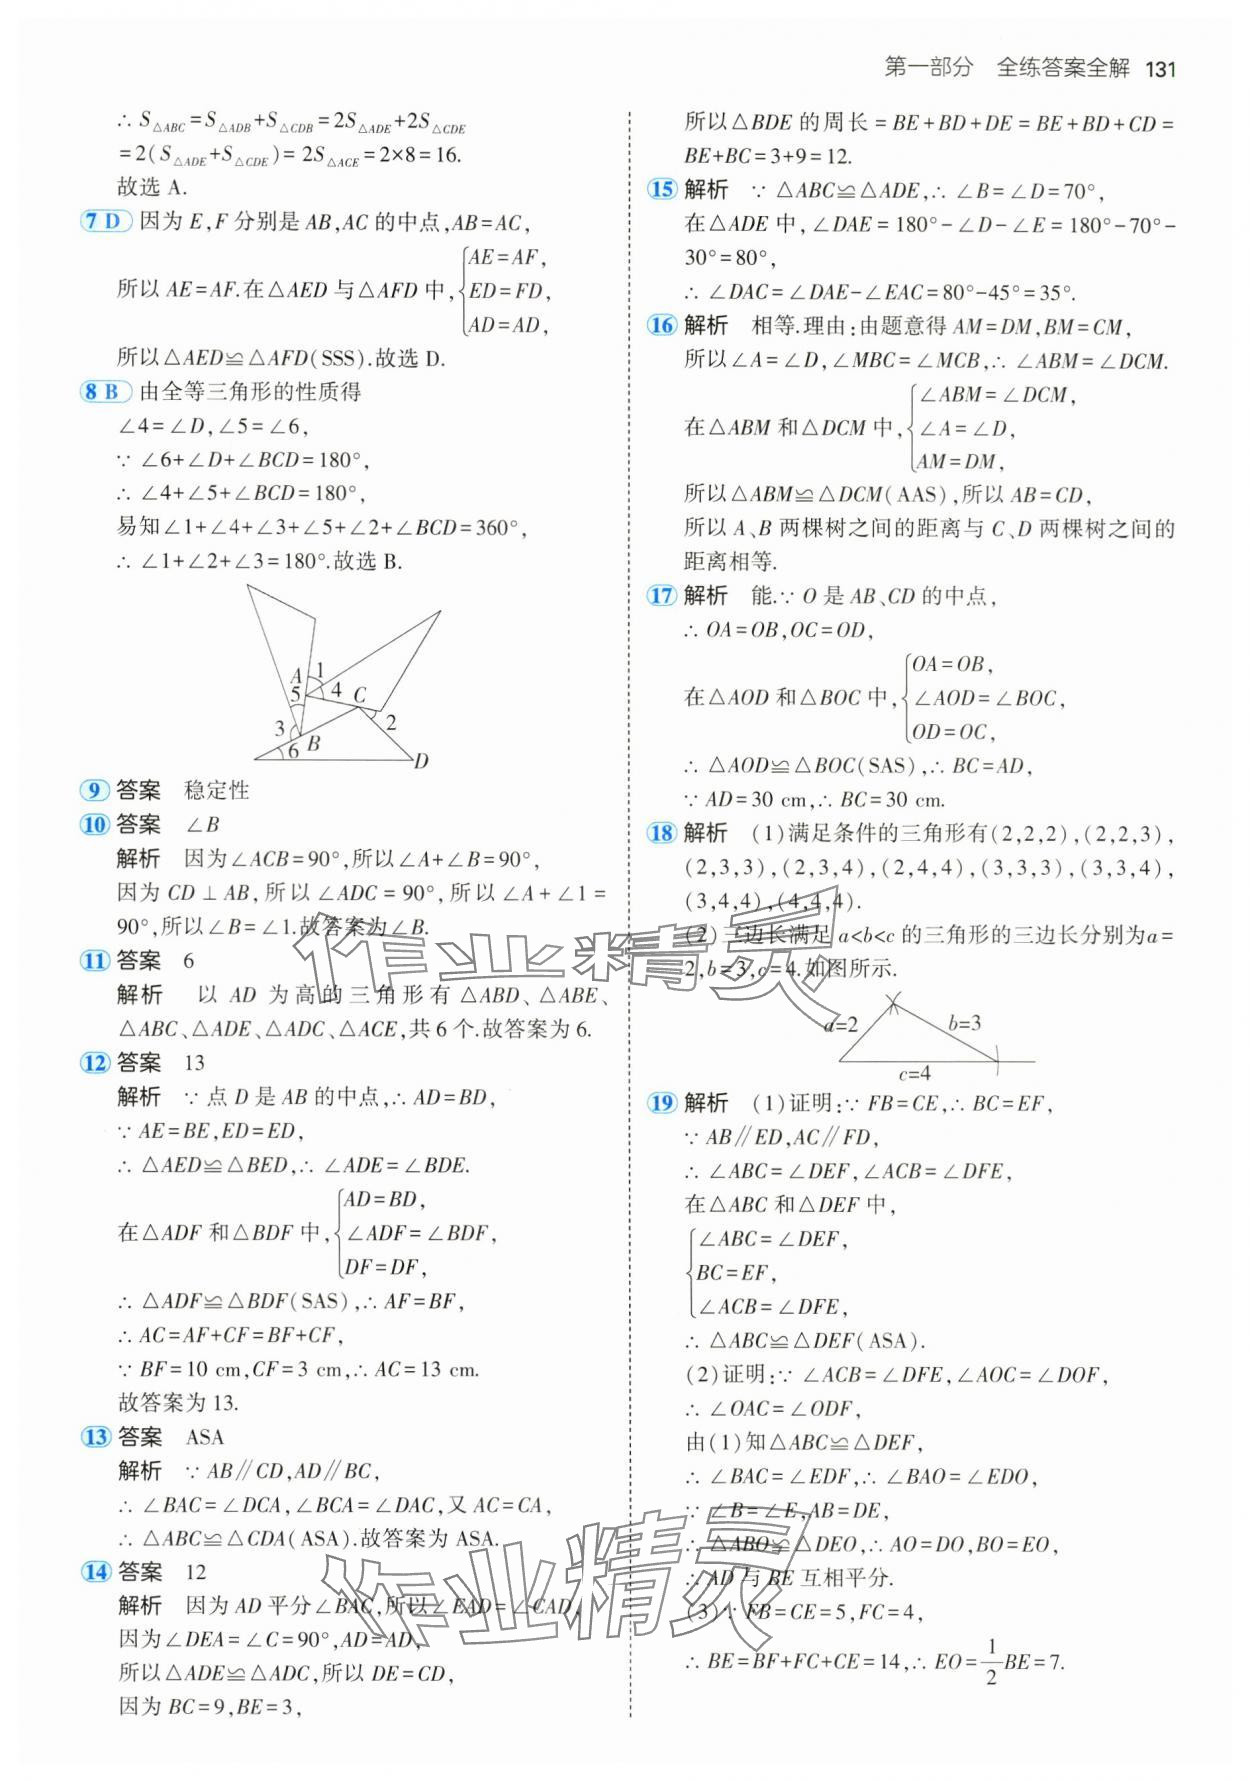 第一部分 全练答案全解 131
∴ S△ABC=S△ADB+S△CDB=2S△ADE+2S△CDE
=2(S△ADE+S△CDE)=2S△ACE=2×8=16.
故选 A.
7 D 因为 E,F 分别是 AB,AC 的中点,AB=AC,
所以 AE=AF.在△AED 与△AFD 中,{AE=AF,
ED=FD,
AD=AD,
所以△AED≌△AFD(SSS).故选 D.
8 B 由全等三角形的性质得
∠4=∠D,∠5=∠6,
∵ ∠6+∠D+∠BCD=180°,
∴ ∠4+∠5+∠BCD=180°,
易知∠1+∠4+∠3+∠5+∠2+∠BCD=360°,
∴ ∠1+∠2+∠3=180°.故选 B.
A 1
5 4 C
3 B 2
6 D
9 答案 稳定性
10 答案 ∠B
解析 因为∠ACB=90°,所以∠A+∠B=90°,
因为 CD⊥AB,所以∠ADC=90°,所以∠A+∠1=
90°,所以∠B=∠1.故答案为∠B.
11 答案 6
解析 以 AD 为高的三角形有△ABD、△ABE、
△ABC、△ADE、△ADC、△ACE,共 6 个.故答案为 6.
12 答案 13
解析 ∵ 点 D 是 AB 的中点,∴ AD=BD,
∵ AE=BE,ED=ED,
∴ △AED≌△BED,∴ ∠ADE=∠BDE.
在△ADF 和△BDF 中,{AD=BD,
∠ADF=∠BDF,
DF=DF,
∴ △ADF≌△BDF(SAS),∴ AF=BF,
∴ AC=AF+CF=BF+CF,
∵ BF=10 cm,CF=3 cm,∴ AC=13 cm.
故答案为 13.
13 答案 ASA
解析 ∵ AB∥CD,AD∥BC,
∴ ∠BAC=∠DCA,∠BCA=∠DAC,又 AC=CA,
∴ △ABC≌△CDA(ASA).故答案为 ASA.
14 答案 12
解析 因为 AD 平分∠BAC,所以∠EAD=∠CAD,
因为∠DEA=∠C=90°,AD=AD,
所以△ADE≌△ADC,所以 DE=CD,
因为 BC=9,BE=3,
所以△BDE 的周长=BE+BD+DE=BE+BD+CD=
BE+BC=3+9=12.
15 解析 ∵ △ABC≌△ADE,∴ ∠B=∠D=70°,
在△ADE 中,∠DAE=180°-∠D-∠E=180°-70°-
30°=80°,
∴ ∠DAC=∠DAE-∠EAC=80°-45°=35°.
16 解析 相等.理由:由题意得 AM=DM,BM=CM,
所以∠A=∠D,∠MBC=∠MCB,∴ ∠ABM=∠DCM.
在△ABM 和△DCM 中,{∠ABM=∠DCM,
∠A=∠D,
AM=DM,
所以△ABM≌△DCM(AAS),所以 AB=CD,
所以 A、B 两棵树之间的距离与 C、D 两棵树之间的
距离相等.
17 解析 能.∵ O 是 AB、CD 的中点,
∴ OA=OB,OC=OD,
在△AOD 和△BOC 中,{OA=OB,
∠AOD=∠BOC,
OD=OC,
∴ △AOD≌△BOC(SAS),∴ BC=AD,
∵ AD=30 cm,∴ BC=30 cm.
18 解析 (1)满足条件的三角形有(2,2,2),(2,2,3),
(2,3,3),(2,3,4),(2,4,4),(3,3,3),(3,3,4),
(3,4,4),(4,4,4).
(2)三边长满足 a<b<c 的三角形的三边长分别为a=
2,b=3,c=4.如图所示.
a=2 b=3
c=4
19 解析 (1)证明:∵ FB=CE,∴ BC=EF,
∵ AB∥ED,AC∥FD,
∴ ∠ABC=∠DEF,∠ACB=∠DFE,
在△ABC 和△DEF 中,
{∠ABC=∠DEF,
BC=EF,
∠ACB=∠DFE,
∴ △ABC≌△DEF(ASA).
(2)证明:∵ ∠ACB=∠DFE,∠AOC=∠DOF,
∴ ∠OAC=∠ODF,
由(1)知△ABC≌△DEF,
∴ ∠BAC=∠EDF,∴ ∠BAO=∠EDO,
∵ ∠B=∠E,AB=DE,
∴ △ABO≌△DEO,∴ AO=DO,BO=EO,
∴ AD 与 BE 互相平分.
(3)∵ FB=CE=5,FC=4,
∴ BE=BF+FC+CE=14,∴ EO=1/2BE=7.
作业精灵
作业精灵